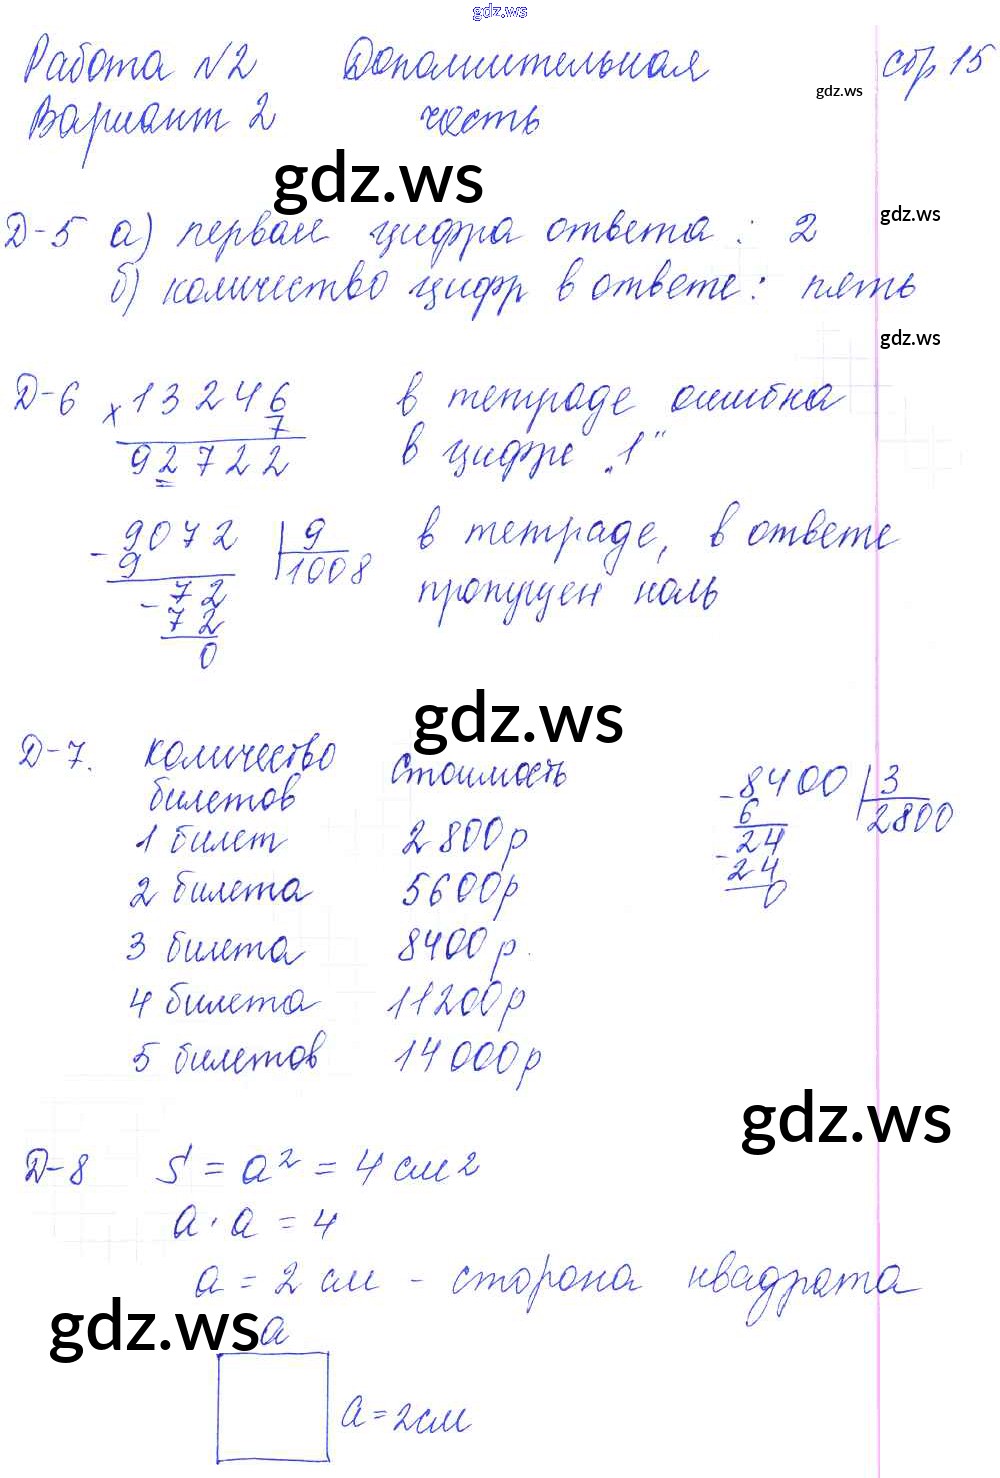 gdz.ws
Работа №2 Дополнительная стр 15
gdz.ws
Вариант 2 часть
gdz.ws
gdz.ws
Д-5 а) первая цифра ответа: 2
б) количество цифр в ответе: пять
gdz.ws
Д-6 × 13246 в тетраде ошибка
7 в цифре „1"
92722
- 9072 9 в тетраде, в ответе
9 1008 пропущен ноль
- 72
72
0
gdz.ws
Д-7. количество стоимость
билетов
- 8400 3
6 2800
- 24
24
0
1 билет 2800р
2 билета 5600р
3 билета 8400р.
4 билета 11200р
5 билетов 14000р
gdz.ws
Д-8 S = a² = 4 см²
a · a = 4
a = 2 см - сторона квадрата
gdz.ws
a
a = 2см